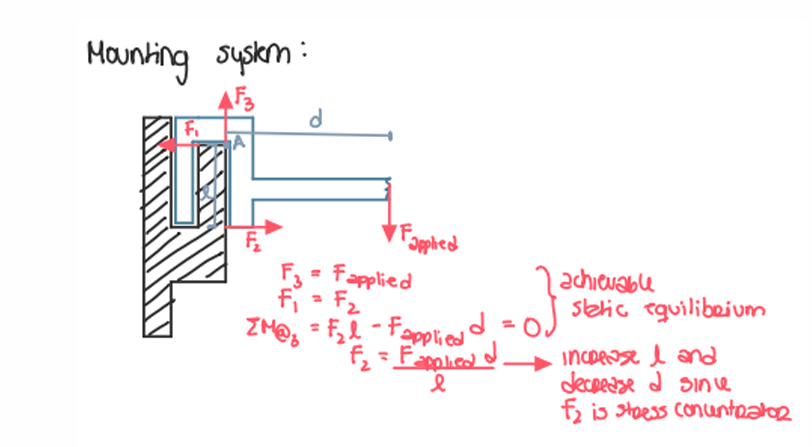 Mounting system:
F3
d
F1
A
l
F2
Fapplied
F3 = Fapplied
F1 = F2
ΣM@3 = F2 l - Fapplied d = 0
F2 = Fapplied d / l
achievable
static equilibrium
increase l and
decrease d since
F2 is stress concentrator